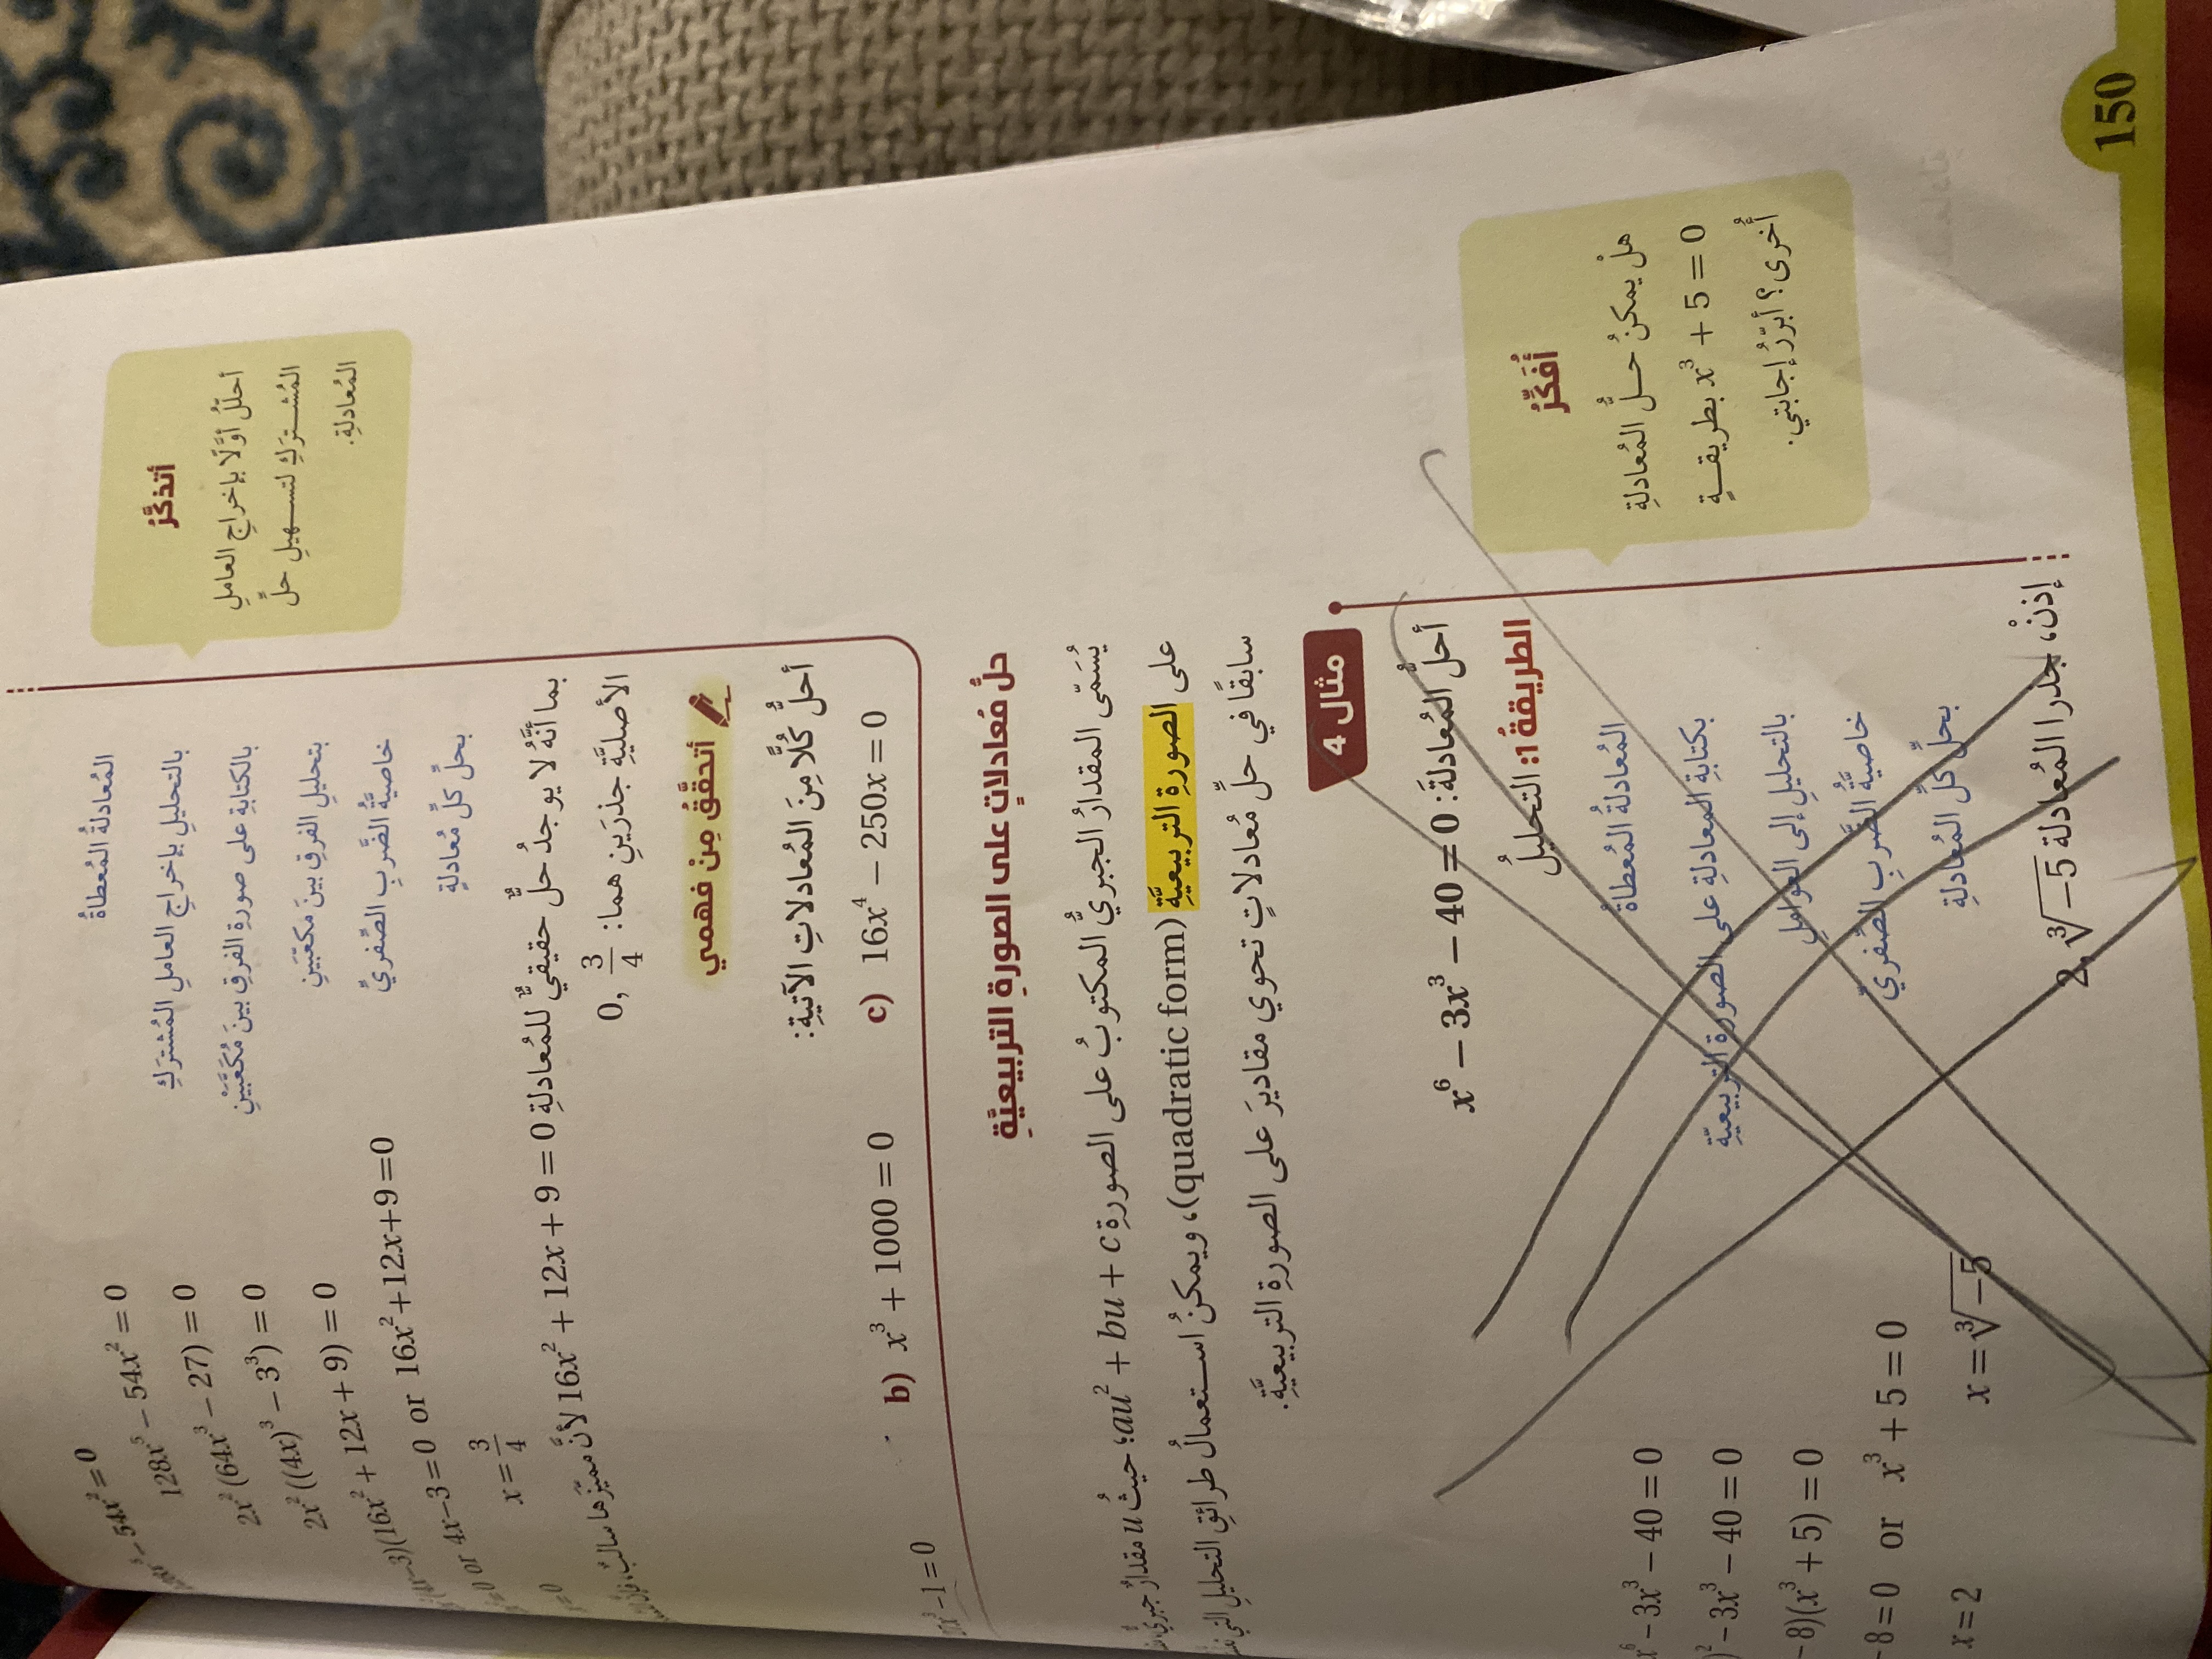 128x⁵ − 54x² = 0 المُعادلةُ المُعطاةُ
2x² (64x³ − 27) = 0 بالتحليلِ بإخراجِ العاملِ المُشترَكِ
2x² ((4x)³ − 3³) = 0 بالكتابةِ على صورةِ الفرقِ بينَ مُكعَّبَيْنِ
(16x² + 12x + 9) = 0 بتحليلِ الفرقِ بينَ مكعَّبَينِ
or 4x−3=0 or 16x²+12x+9=0 خاصيَّةُ الضَّربِ الصِّفريِّ
x = 3/4 بحلِّ كلِّ مُعادلةٍ
بما أنَّهُ لا يوجدُ حلٌّ حقيقيٌّ للمُعادلةِ 16x² + 12x + 9 = 0 لأنَّ مميّزَها سالبٌ،
الأصليَّةِ جذرَينِ هما: 0, 3/4
أتذكَّرُ
أحلّلُ أوّلًا بإخراجِ العاملِ
المُشتركِ لتسهيلِ حلِّ
المُعادلةِ.
أتحقَّقُ مِن فهمي
أحلُّ كُلًّا مِنَ المُعادلاتِ الآتيةِ:
− 1 = 0 b) x³ + 1000 = 0 c) 16x⁴ − 250x = 0
حلُّ مُعادلاتٍ على الصورةِ التربيعيَّةِ
يُسَمّى المقدارُ الجبريُّ المكتوبُ على الصورةِ au² + bu + c؛ حيثُ u مقدارٌ جبريٌّ،
على الصورةِ التربيعيَّةِ (quadratic form)، ويمكنُ استعمالُ طرائقِ التحليلِ التي
سابقًا في حلِّ مُعادلاتٍ تحوي مقاديرَ على الصورةِ التربيعيَّةِ.
مثال 4
أحلُّ المُعادلةَ: x⁶ − 3x³ − 40 = 0
الطريقةُ 1: التحليلُ
x⁶ − 3x³ − 40 = 0 المُعادلةُ المُعطاةُ
)² − 3x³ − 40 = 0 بكتابةِ المعادلةِ على الصورةِ التربيعيّةِ
− 8)(x³ + 5) = 0 بالتحليلِ إلى العواملِ
− 8 = 0 or x³ + 5 = 0 خاصيَّةُ الضَّربِ الصِّفريِّ
x = 2 x = ∛−5 بحلِّ كلِّ المُعادلةِ
إذنْ، جذرا المُعادلة 2, ∛−5
أُفَكِّرُ
هلْ يمكنُ حلُّ المُعادلةِ
x³ + 5 = 0 بطريقةٍ
أُخرى؟ أبرّرُ إجابتي.
150